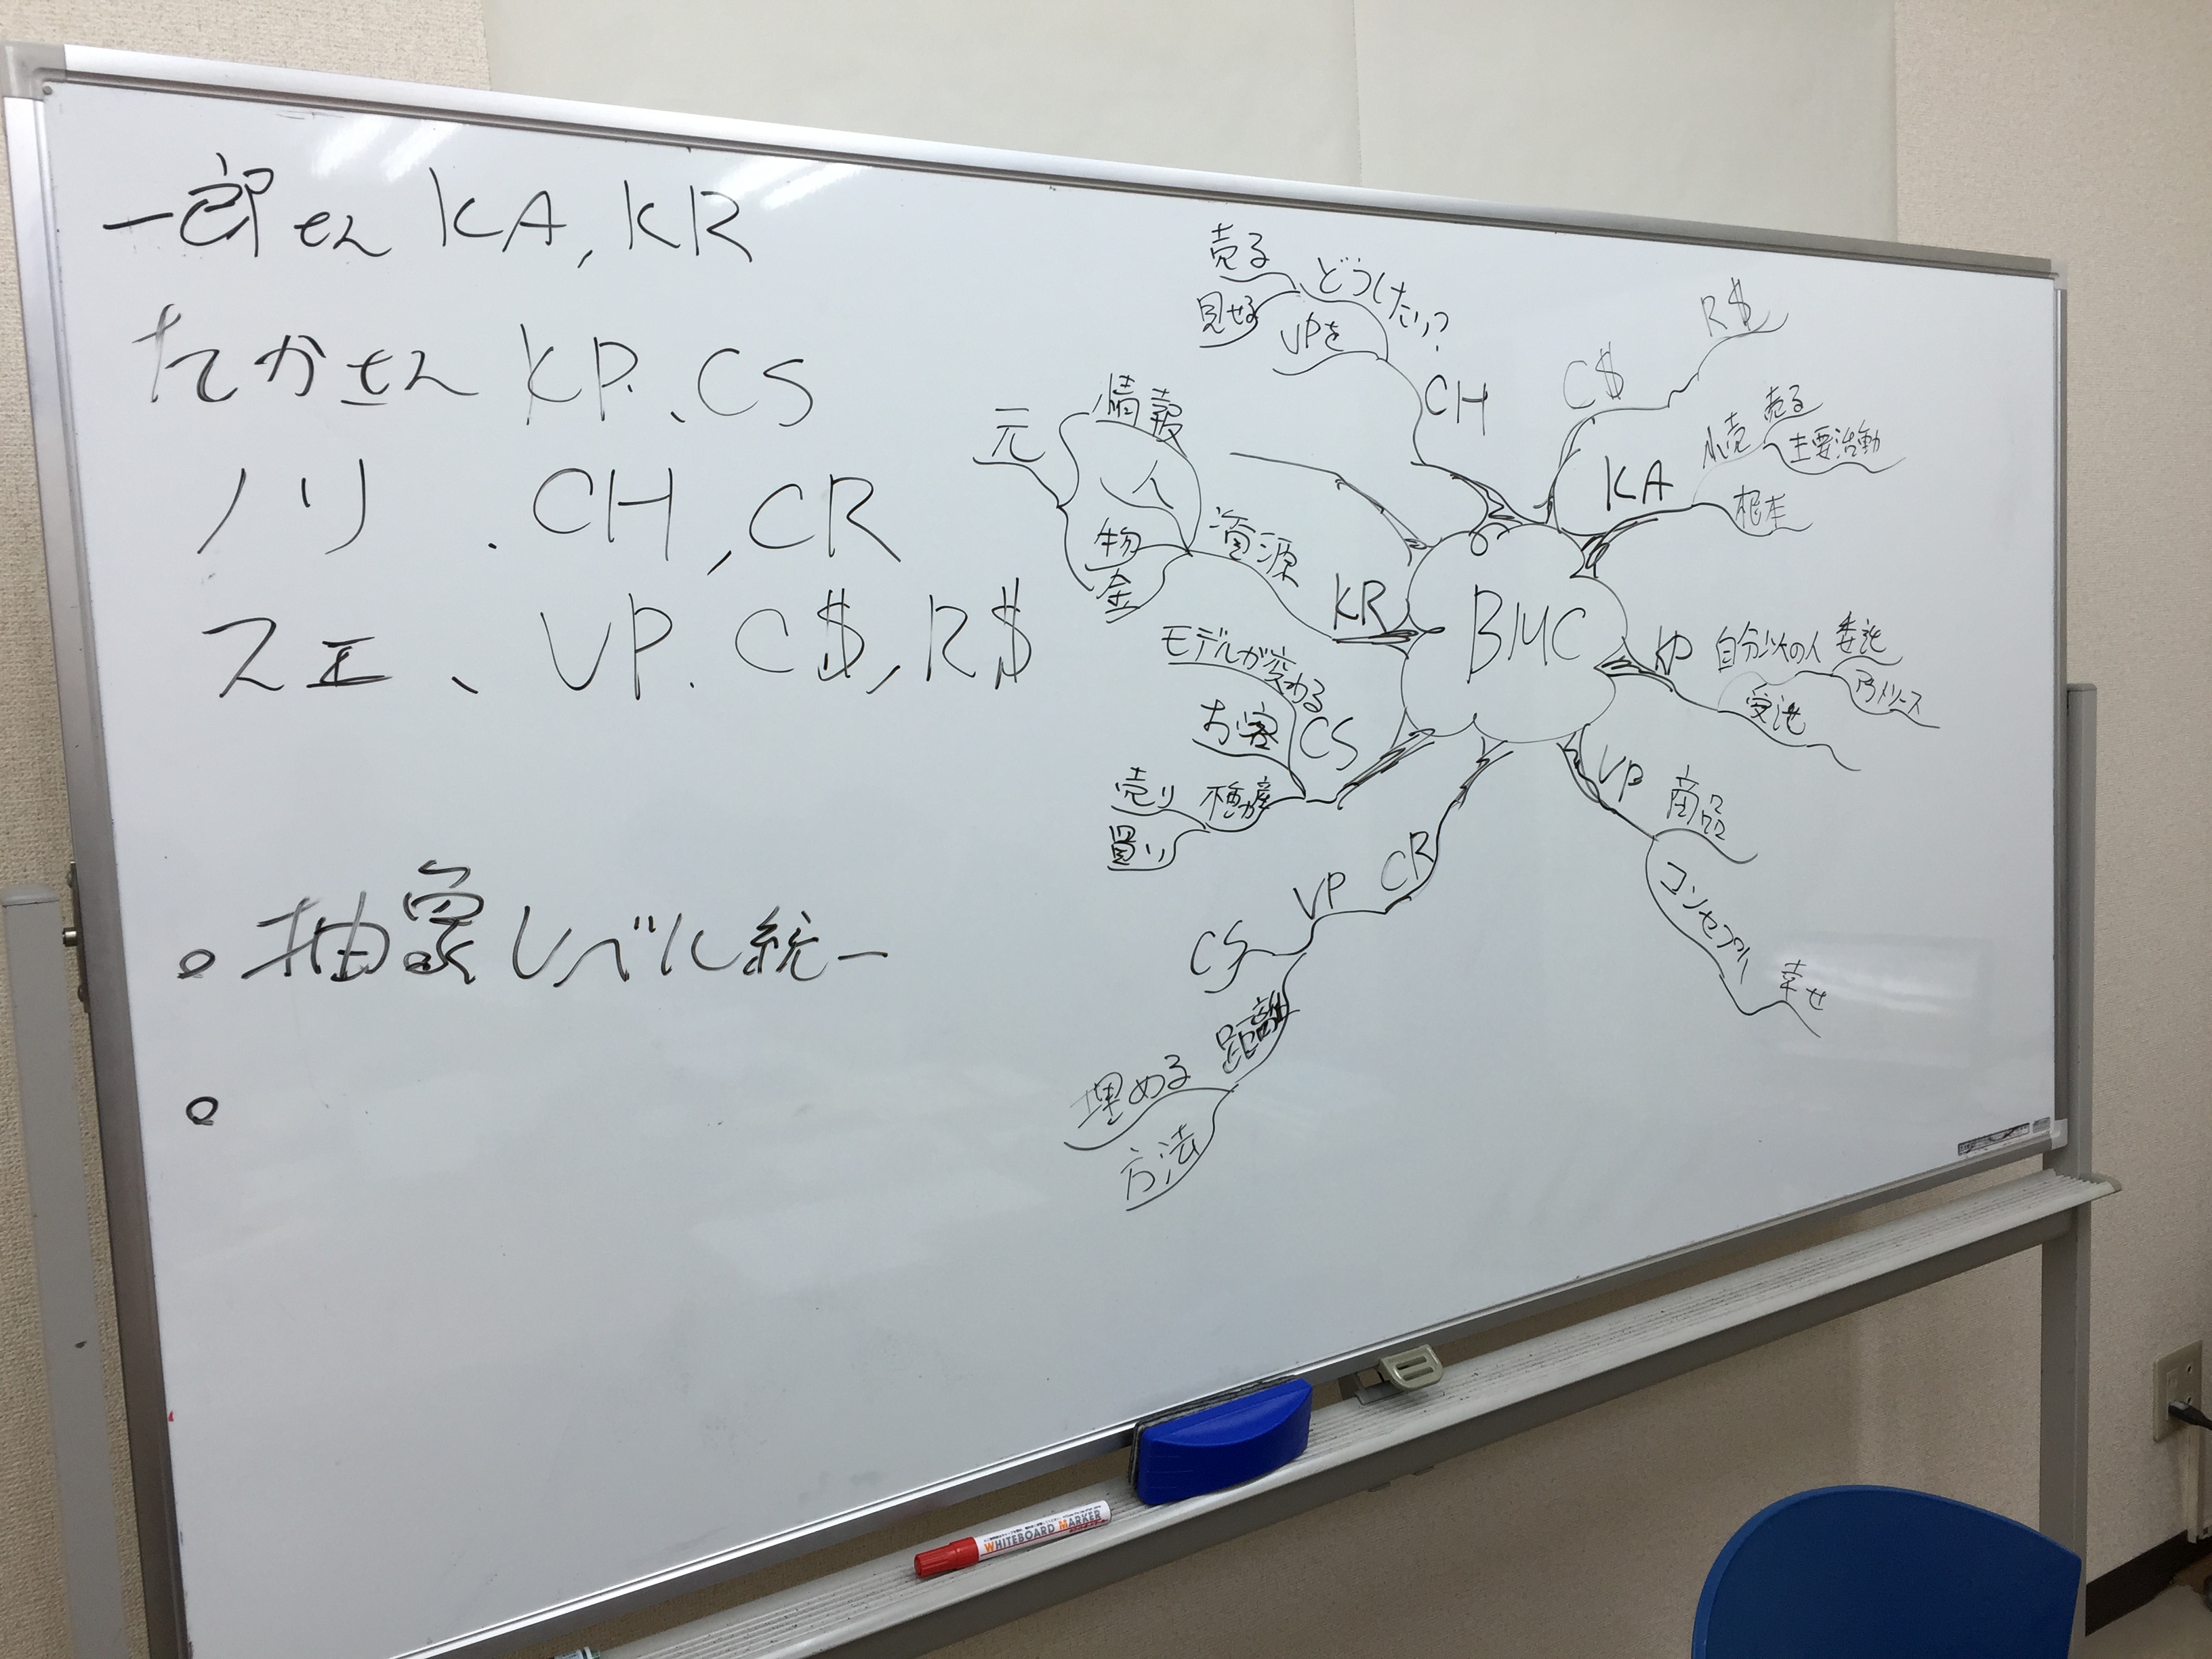 一郎さん KA, KR
たかさん KP、CS
ノリ 、CH, CR
スエ、VP、C$, R$
。抽象レベル統一
。
BMC
CH
どうしたい?
VPを
売る
見せる
C$
R$
KA
小売
売る
主要活動
根本
KP
自分以外の人
委託
受託
VP
商品
コンセプト
幸せ
CR
VP
CS
距離
埋める
方法
CS
モデルが変わる
お客
不動産
売り
買い
KR
資源
情報
人
物
金
元
WHITEBOARD MARKER